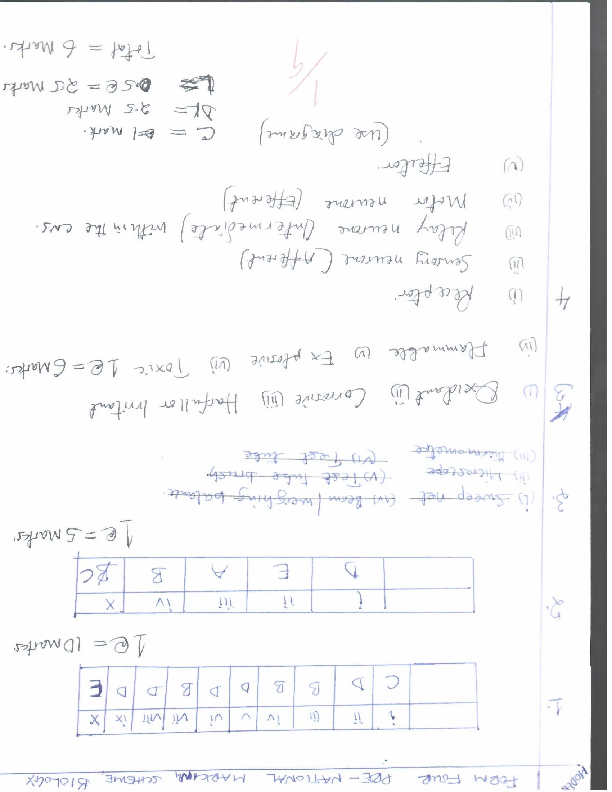 FORM FOUR PRE-NATIONAL MARKING SCHEME, BIOLOGY
1. i ii iii iv v vi vii viii ix x
C D B B D D B D D E
1@ = 10marks
2. i ii iii iv x
D E A B C
1@ = 5marks
3. (i) Sweep net (iv) Beam/weighing balance.
(ii) Microscope (v) Test tube brush
(iii) thermometre (vi) Test tube
3 (i) Oxidant (ii) Corrosive (iii) Harfull or Irritant
(iv) Flammable (v) Explosive (vi) Toxic 1@ = 6 Marks.
4 (i) Receptor.
(ii) Sensory neurone (Afferent)
(iii) Relay neurone (Intermediate) within the cns.
(iv) Motor neurone (Efferent)
(v) Effector.
(Use diagrame) C = 01 mark.
DL = 2.5 Marks
L = 0.5@ = 2.5 Marks
Total = 6 Marks.